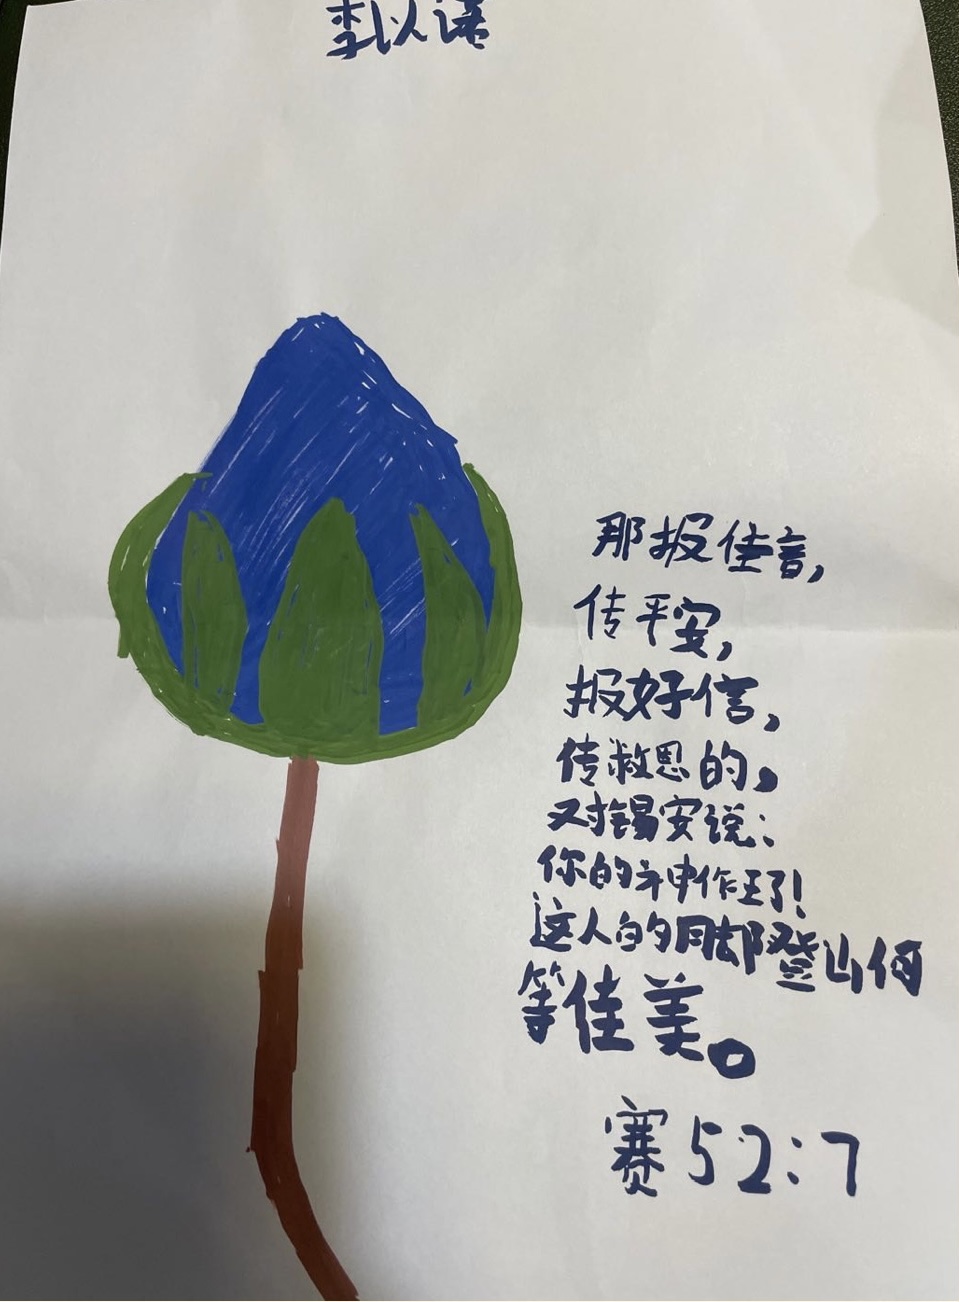 李以诺
那报佳音,
传平安,
报好信,
传救恩的,
又对锡安说:
你的神作王了!
这人的脚登山何
等佳美。
赛52:7